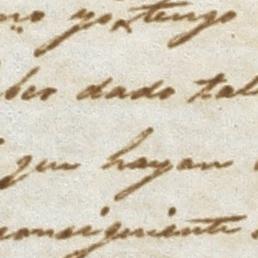 no yo tengo
ber dado tal
que hayan
consiguiente